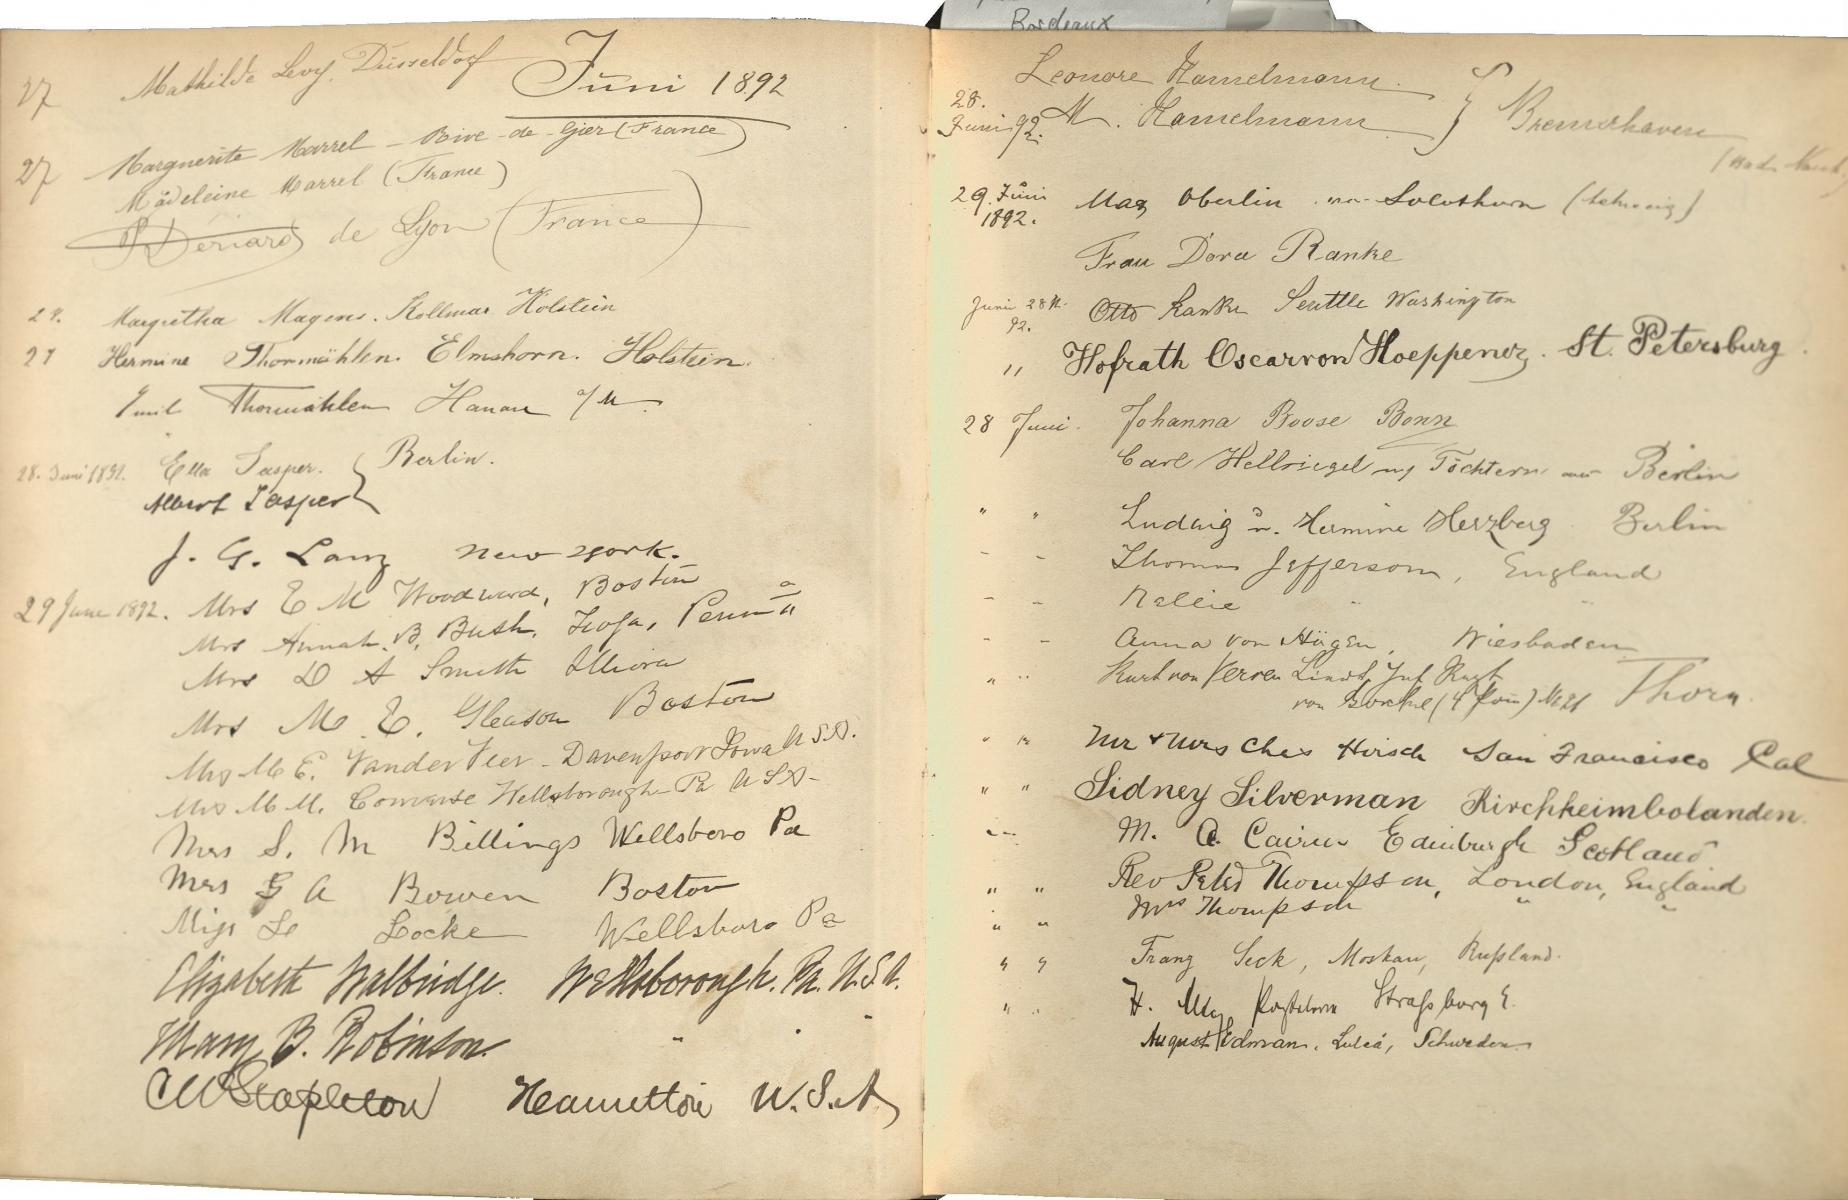 Bordeaux
Juni 1892
27 Mathilde Levy. Düsseldorf
27 Marguerite Marrel - Rive-de-Gier (France)
Madeleine Marrel (France)
de Lyon (France)
27. Margretha Magens. Kollmar Holstein
27 Hermine Thormählen. Elmshorn. Holstein.
Emil Thormählen Hanau a/M.
28. Juni 1892. Ella Jasper. Berlin.
Albert Jasper
J. G. Lanz New York.
29 June 1892. Mrs E M Woodward, Boston
Mrs Annah. B. Bush, Tioga, Penn a
Mrs D A Smith
Mrs M. E. Gleason Boston
Mrs M E. Vander Veer - Davenport Iowa U S A.
Mrs M. M. Converse Wellsborough Pa U S A -
Mrs S. M Billings Wellsboro Pa
Mrs G A Bowen Boston
Miss Locke Wellsboro Pa
Elizabeth Walbridge. Wellsborough. Pa. U.S.A.
Mary B. Robinson. " " "
C W Stapleton U.S.A.
Leonore Hamelmann.
28. Juni 92. M. Hamelmann Bremerhaven
29. Juni 1892. Max Oberlin Solothurn (Schweiz)
Frau Dora Ranke
Juni 28 92. Otto Ranke Seattle Washington
" Hofrath Oscar von Hoeppener. St. Petersburg.
28 Juni. Johanna Boose Bonn
Carl Hellriegel Töchtern aus Berlin
" " Ludwig u. Hermine Herzberg Berlin
" " Thomas Jefferson, England
" " Nellie " "
" " Anna von Hägen, Wiesbaden
" " Kurt von
von Borcke (4 Pom) No 21 Thorn.
" " Mr & Mrs Chas Hirsch San Francisco Cal
" " Sidney Silverman Kirchheimbolanden.
" " M. A. Cairns Edinburgh Scotland
" " Rev Peter Thompson, London, England
" " Mrs Thompson " "
" " Franz Seck, Moskau, Rußland.
" " H. Straßburg E.
August Edman. Luleå, Schweden